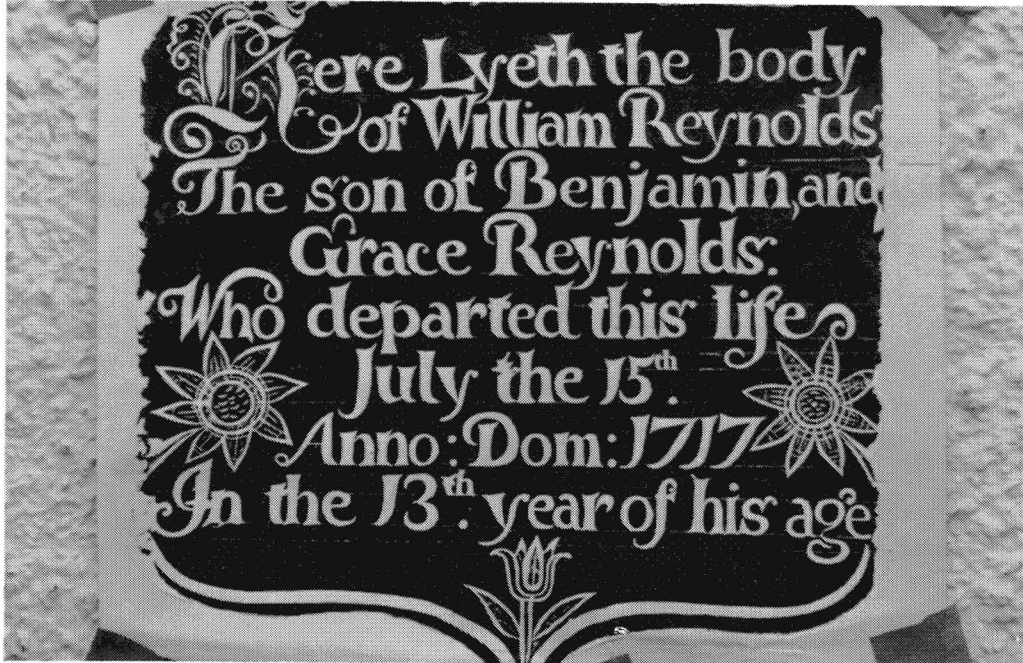 Here Lyeth the body
of William Reynolds
The son of Benjamin, and
Grace Reynolds:
Who departed this life
July the 15th.
Anno: Dom: 1717
In the 13th. year of his age